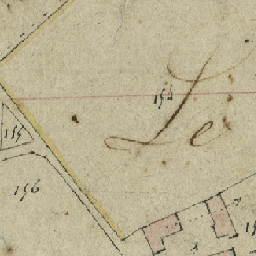 154
Le
155
156